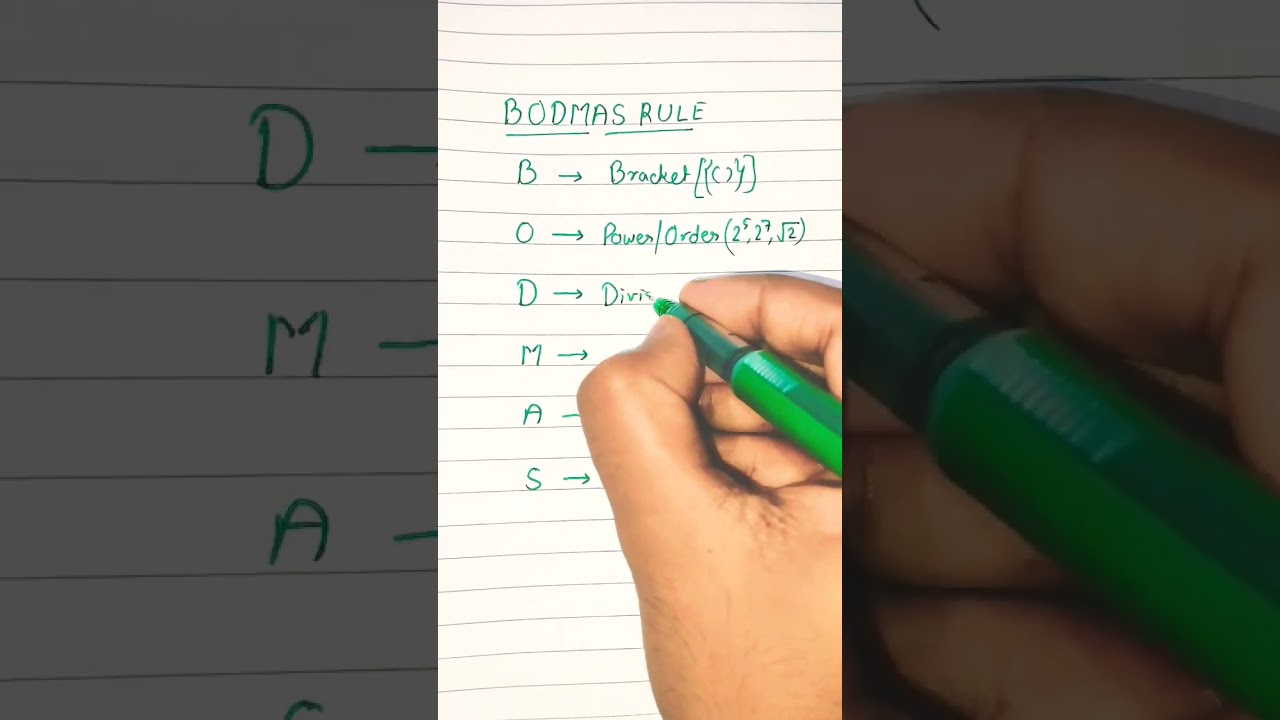 BODMAS RULE
B → Bracket [{( )}]
O → Power/Order (2⁵, 2⁷, √2)
D → Divis
M →
A –
S →